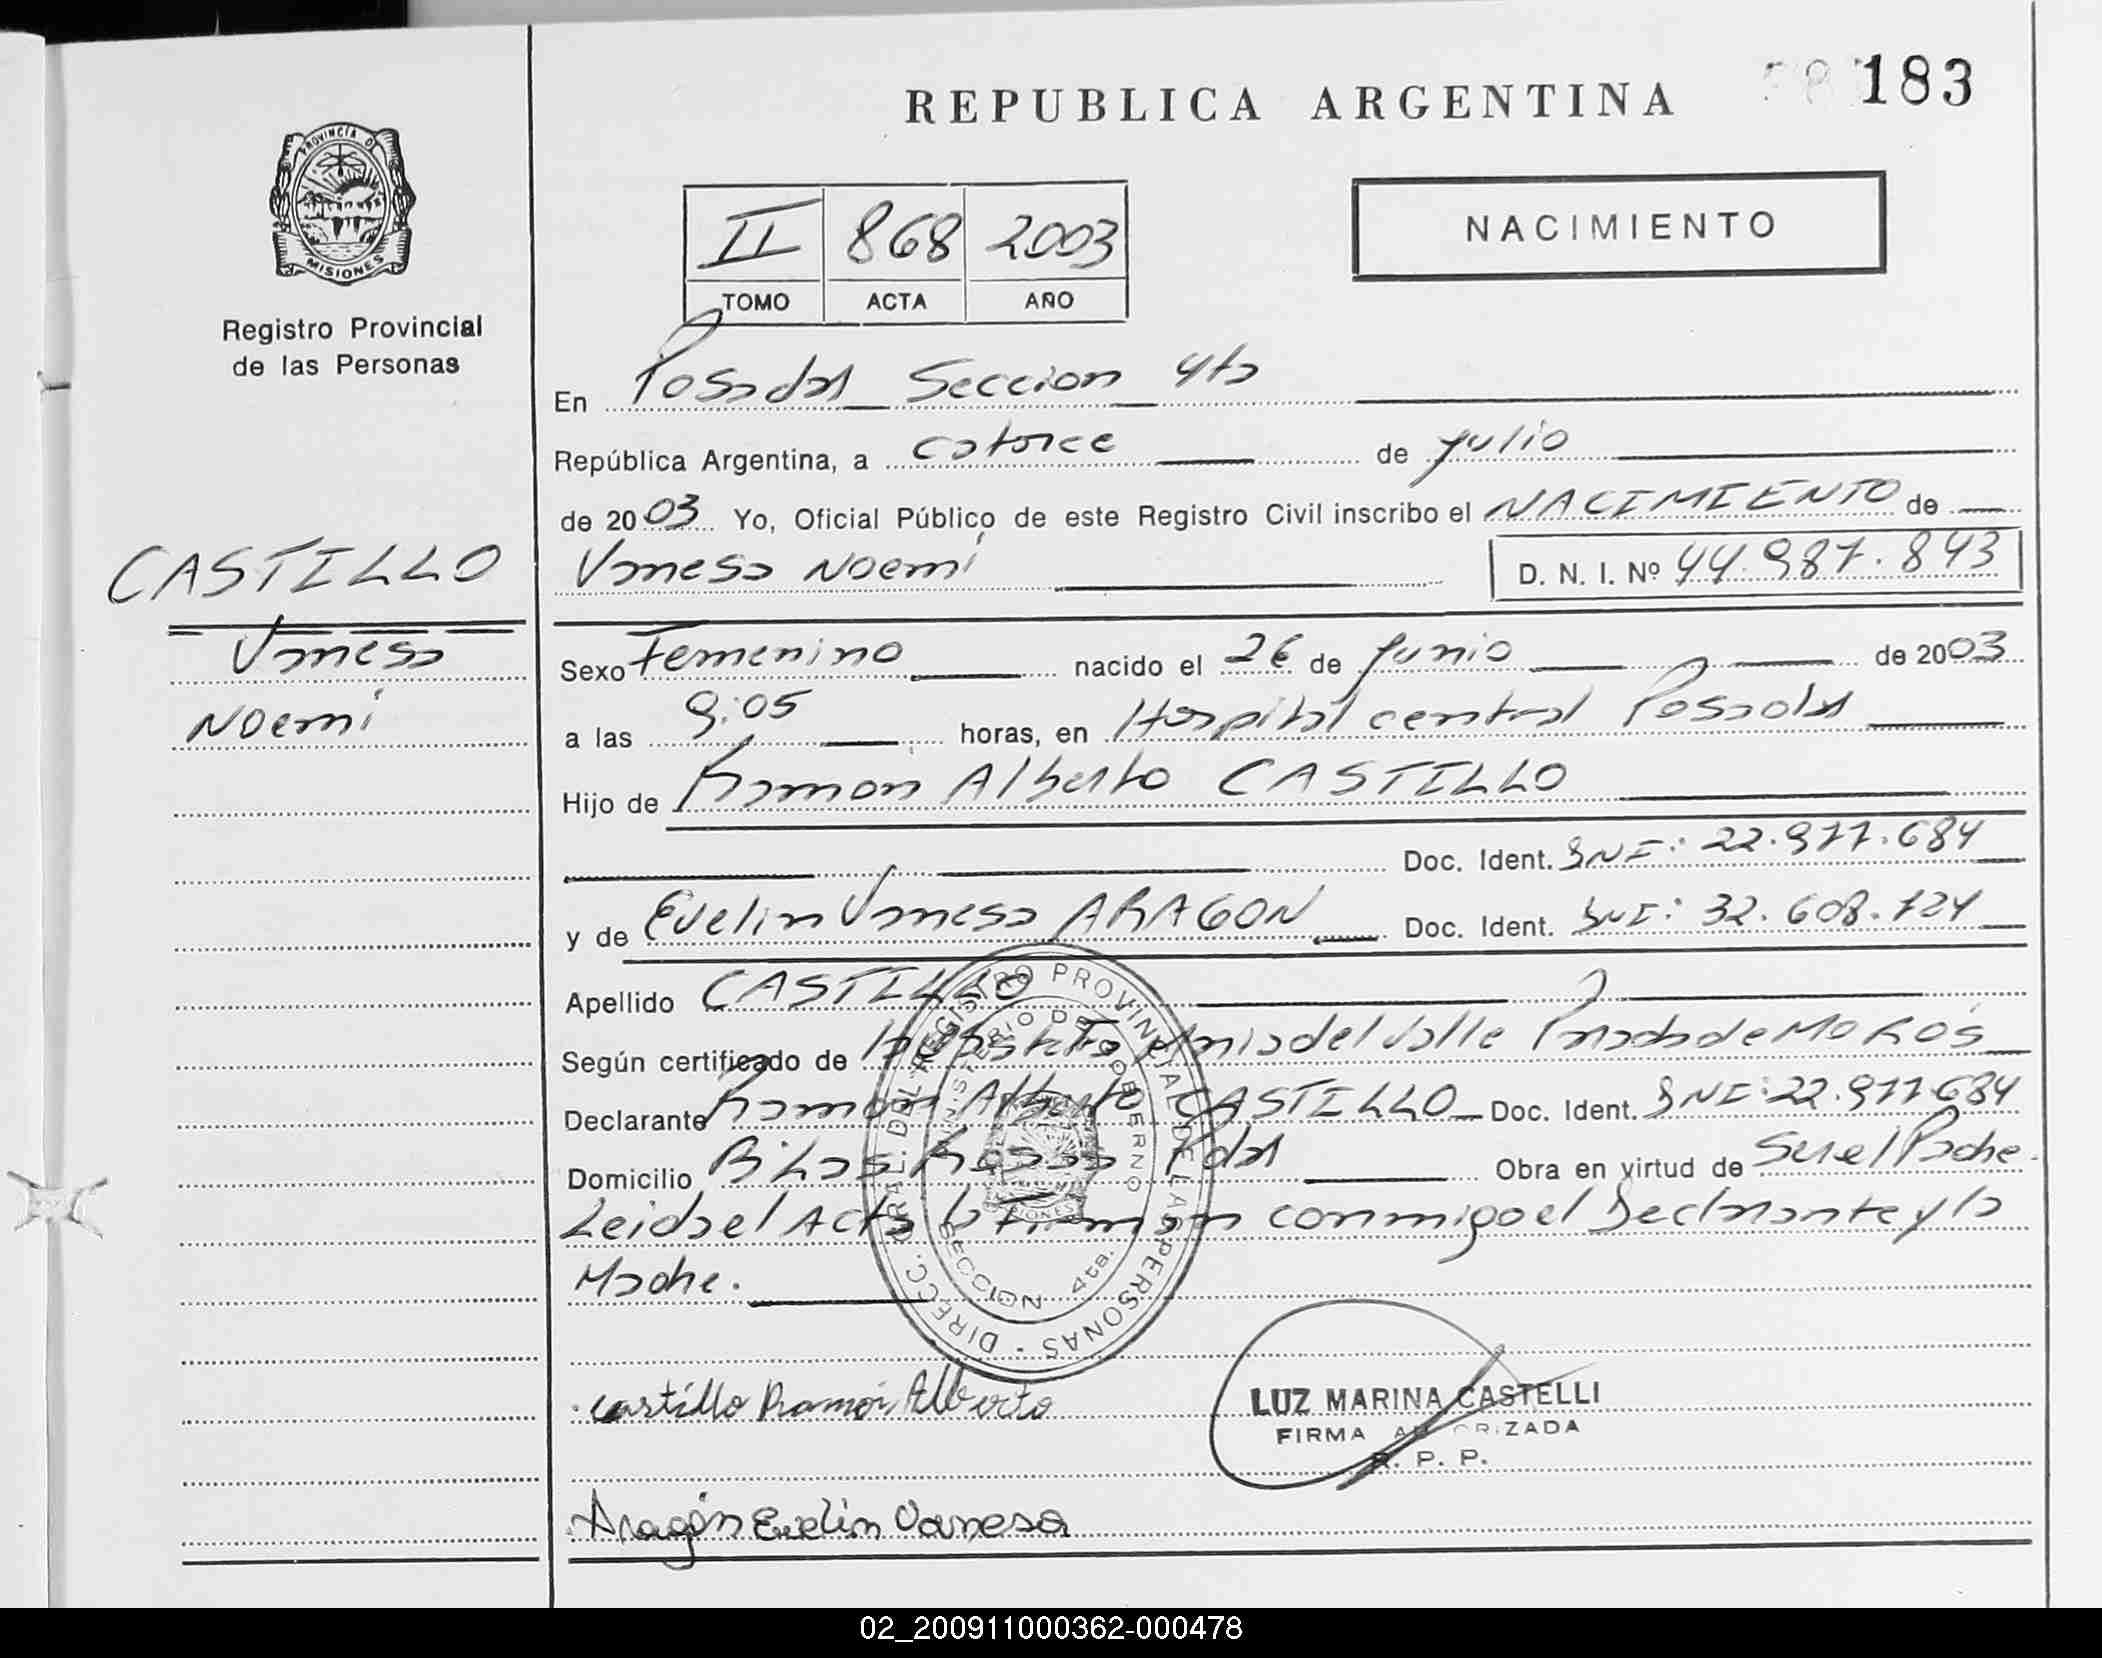 REPUBLICA ARGENTINA
183
PROVINCIA D
MISIONES
Registro Provincial
de las Personas
II 868 2003
TOMO ACTA AÑO
NACIMIENTO
En Posadas Seccion 4ta
República Argentina, a catorce de julio
de 2003 Yo, Oficial Público de este Registro Civil inscribo el NACIMIENTO de
Vanesa Noemi D. N. I. Nº 44.987.843
CASTILLO
Vanesa
Noemi
Sexo Femenino nacido el 26 de junio de 2003
a las 9:05 horas, en Hospital central Posadas
Hijo de Ramon Alberto CASTILLO
Doc. Ident. DNI: 22.977.684
y de Evelin Vanesa ARAGON Doc. Ident. DNI: 32.608.724
Apellido CASTILLO
Según certificado de Obstetra del Valle de MOROS
Declarante Ramon Alberto CASTILLO Doc. Ident. DNI: 22.977.684
Domicilio Bº Las Rosas Pdas Obra en virtud de Ser el Padre.
Leida el Acta la Firman conmigo el Declarante y la
Madre.
DIRECC. GRAL. DEL REGISTRO PROVINCIAL DE LAS PERSONAS
MINISTERIO DE GOBERNO
SECCION 4ta.
castillo Ramon Alberto
LUZ MARINA CASTELLI
FIRMA AUTORIZADA
R. P. P.
Aragón Evelin Vanesa
02_200911000362-000478